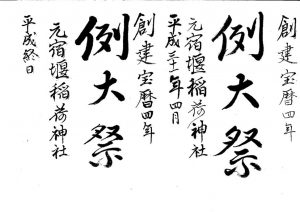 創建宝暦四年
例大祭
元宿堰稲荷神社
平成三十一年四月
創建宝暦四年
例大祭
元宿堰稲荷神社
平成終日